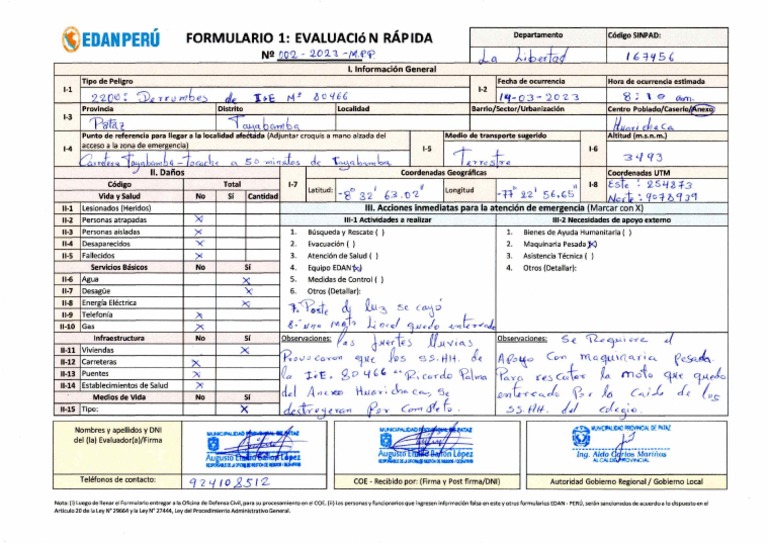 EDANPERÚ
FORMULARIO 1: EVALUACIÓN RÁPIDA
Nº 002-2023-M.P.P.
Departamento
Código SINPAD:
La Libertad
167456
I. Información General
I-1
Tipo de Peligro
2200: Derrumbes de I.E Nº 80466
I-2
Fecha de ocurrencia
14-03-2023
Hora de ocurrencia estimada
8:10 am.
I-3
Provincia
Distrito
Localidad
Barrio/Sector/Urbanización
Centro Poblado/Caserio/Anexo
Pataz
Tayabamba
Huarichaca
I-4
Punto de referencia para llegar a la localidad afectada (Adjuntar croquis a mano alzada del
acceso a la zona de emergencia)
Carretera Tayabamba-Tocache a 50 minutos de Tayabamba
I-5
Medio de transporte sugerido
Terrestre
Altitud (m.s.n.m.)
3493
II. Daños
Código
Total
I-7
Coordenadas Geográficas
Latitud:
-8° 32' 63.02"
Longitud
-77° 22' 56.65"
I-8
Coordenadas UTM
Este: 254873
Norte: 9078939
Vida y Salud
No
Sí
Cantidad
II-1
Lesionados (Heridos)
II-2
Personas atrapadas
X
II-3
Personas aisladas
X
II-4
Desaparecidos
X
II-5
Fallecidos
X
Servicios Básicos
No
Sí
II-6
Agua
X
II-7
Desagüe
X
II-8
Energía Eléctrica
X
II-9
Telefonía
X
II-10
Gas
X
Infraestructura
No
Sí
II-11
Viviendas
X
II-12
Carreteras
X
II-13
Puentes
X
II-14
Establecimientos de Salud
X
Medios de Vida
No
Sí
II-15
Tipo:
X
III. Acciones inmediatas para la atención de emergencia (Marcar con X)
III-1 Actividades a realizar
1. Búsqueda y Rescate ( )
2. Evacuación ( )
3. Atención de Salud ( )
4. Equipo EDAN (X)
5. Medidas de Control ( )
6. Otros (Detallar):
7. Poste de luz se cayó
8. una moto lineal quedo enterrado
III-2 Necesidades de apoyo externo
1. Bienes de Ayuda Humanitaria ( )
2. Maquinaria Pesada (X)
3. Asistencia Técnica ( )
4. Otros (Detallar):
Observaciones: las fuertes lluvias
Provocaron que los SS.HH. de
la I.E. 80466 "Ricardo Palma
del Anexo Huarichaca, se
destruyeran por completo.
Observaciones: Se Requiere el
Apoyo con maquinaria pesada
Para rescatar la moto que quedo
enterrado Por la caida de los
SS.HH. del colegio.
Nombres y apellidos y DNI
del (la) Evaluador(a)/Firma
MUNICIPALIDAD PROVINCIAL DE PATAZ
Teléfonos de contacto:
924108512
MUNICIPALIDAD PROVINCIAL DE PATAZ
COE - Recibido por: (Firma y Post firma/DNI)
MUNICIPALIDAD PROVINCIAL DE PATAZ
Ing. Aldo Carlos Mariños
ALCALDE PROVINCIAL
Autoridad Gobierno Regional / Gobierno Local
Nota: (i) Luego de llenar el Formulario entregar a la Oficina de Defensa Civil, para su procesamiento en el COE. (ii) las personas y funcionarios que ingresen información falsa en este y otros formularios EDAN - PERÚ, serán sancionadas de acuerdo a lo dispuesto en el
Artículo 20 de la Ley N° 29664 y la Ley N° 27444, Ley del Procedimiento Administrativo General.